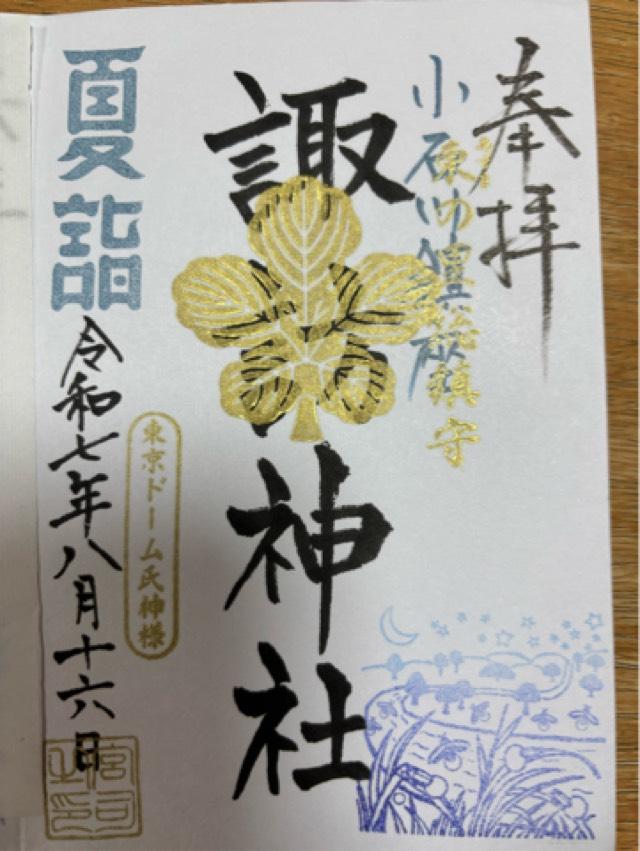 奉拝
小石川
鎮守
諏訪神社
東京ドーム氏神様
夏詣
令和七年八月十六日
宮司之印